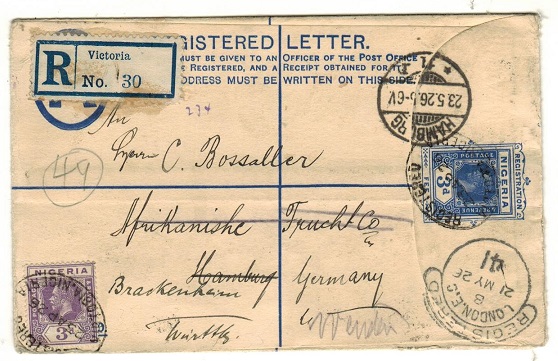 Victoria
R No. 30
REGISTERED LETTER.
MUST BE GIVEN TO AN OFFICER OF THE POST OFFICE
REGISTERED, AND A RECEIPT OBTAINED FOR
ADDRESS MUST BE WRITTEN ON THIS SIDE.
HAMBURG
23.5.26.5-6V.
* 1 *
234
An
Herrn C. Bossaller
49
REGISTRATION
NIGERIA
POSTAGE & REVENUE
3d
REGISTERED
Afrikanishe Frucht Co
Hamburg Germany
Brackenheim
Württbg.
NIGERIA
3d
REGISTERED
VICTORIA.NIGERIA
41
REGISTERED
8
21 MY 26
LONDON.E.C.